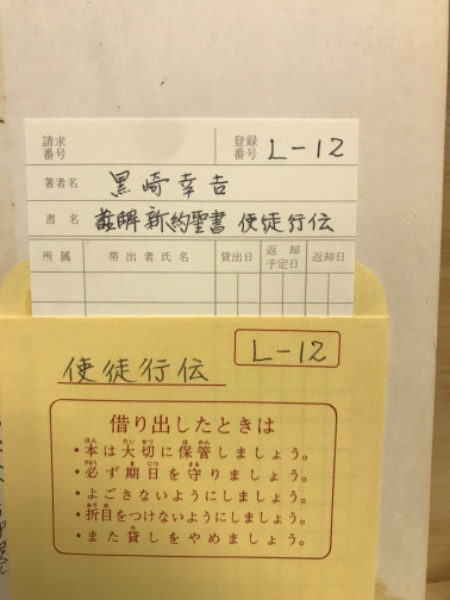 請求番号
登録番号 L-12
著者名 黒崎幸吉
書名 註解新約聖書 使徒行伝
所属 帯出者氏名 貸出日 返却予定日 返却日
L-12
使徒行伝
借り出したときは
・本は大切に保管しましょう。
・必ず期日を守りましょう。
・よごさないようにしましょう。
・折目をつけないようにしましょう。
・また貸しをやめましょう。